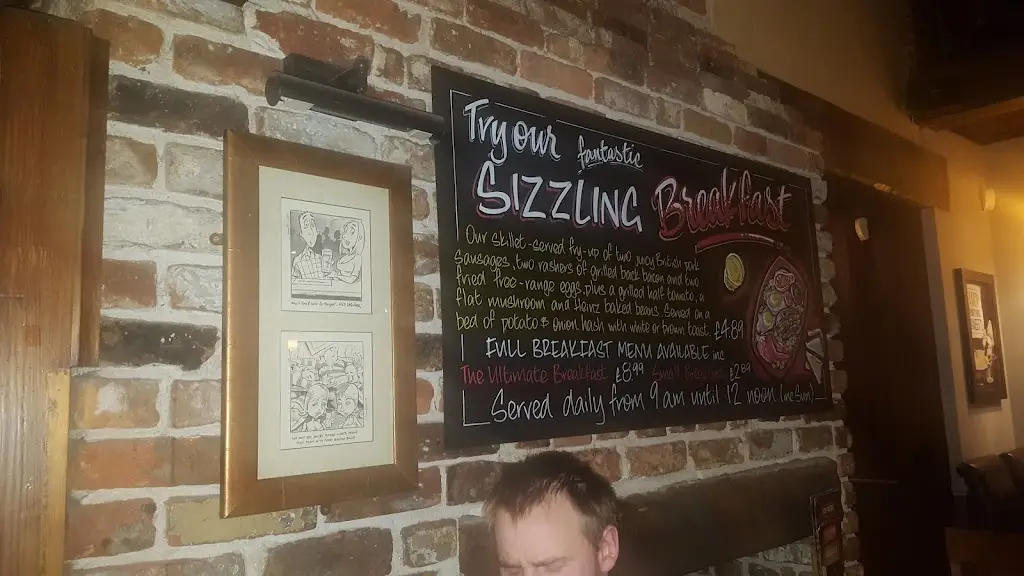 Try our fantastic
SIZZLING Breakfast
Our skillet-served fry-up of two juicy British pork
sausages, two rashers of grilled back bacon and two
fried free-range eggs, plus a grilled half tomato, a
flat mushroom and Heinz baked beans. Served on a
bed of potato & onion hash with white or brown toast. £4.89
FULL BREAKFAST MENU AVAILABLE inc
The Ultimate Breakfast £8.99 Small Breakfast £2.89
Served daily from 9am until 12 noon (inc Sun)